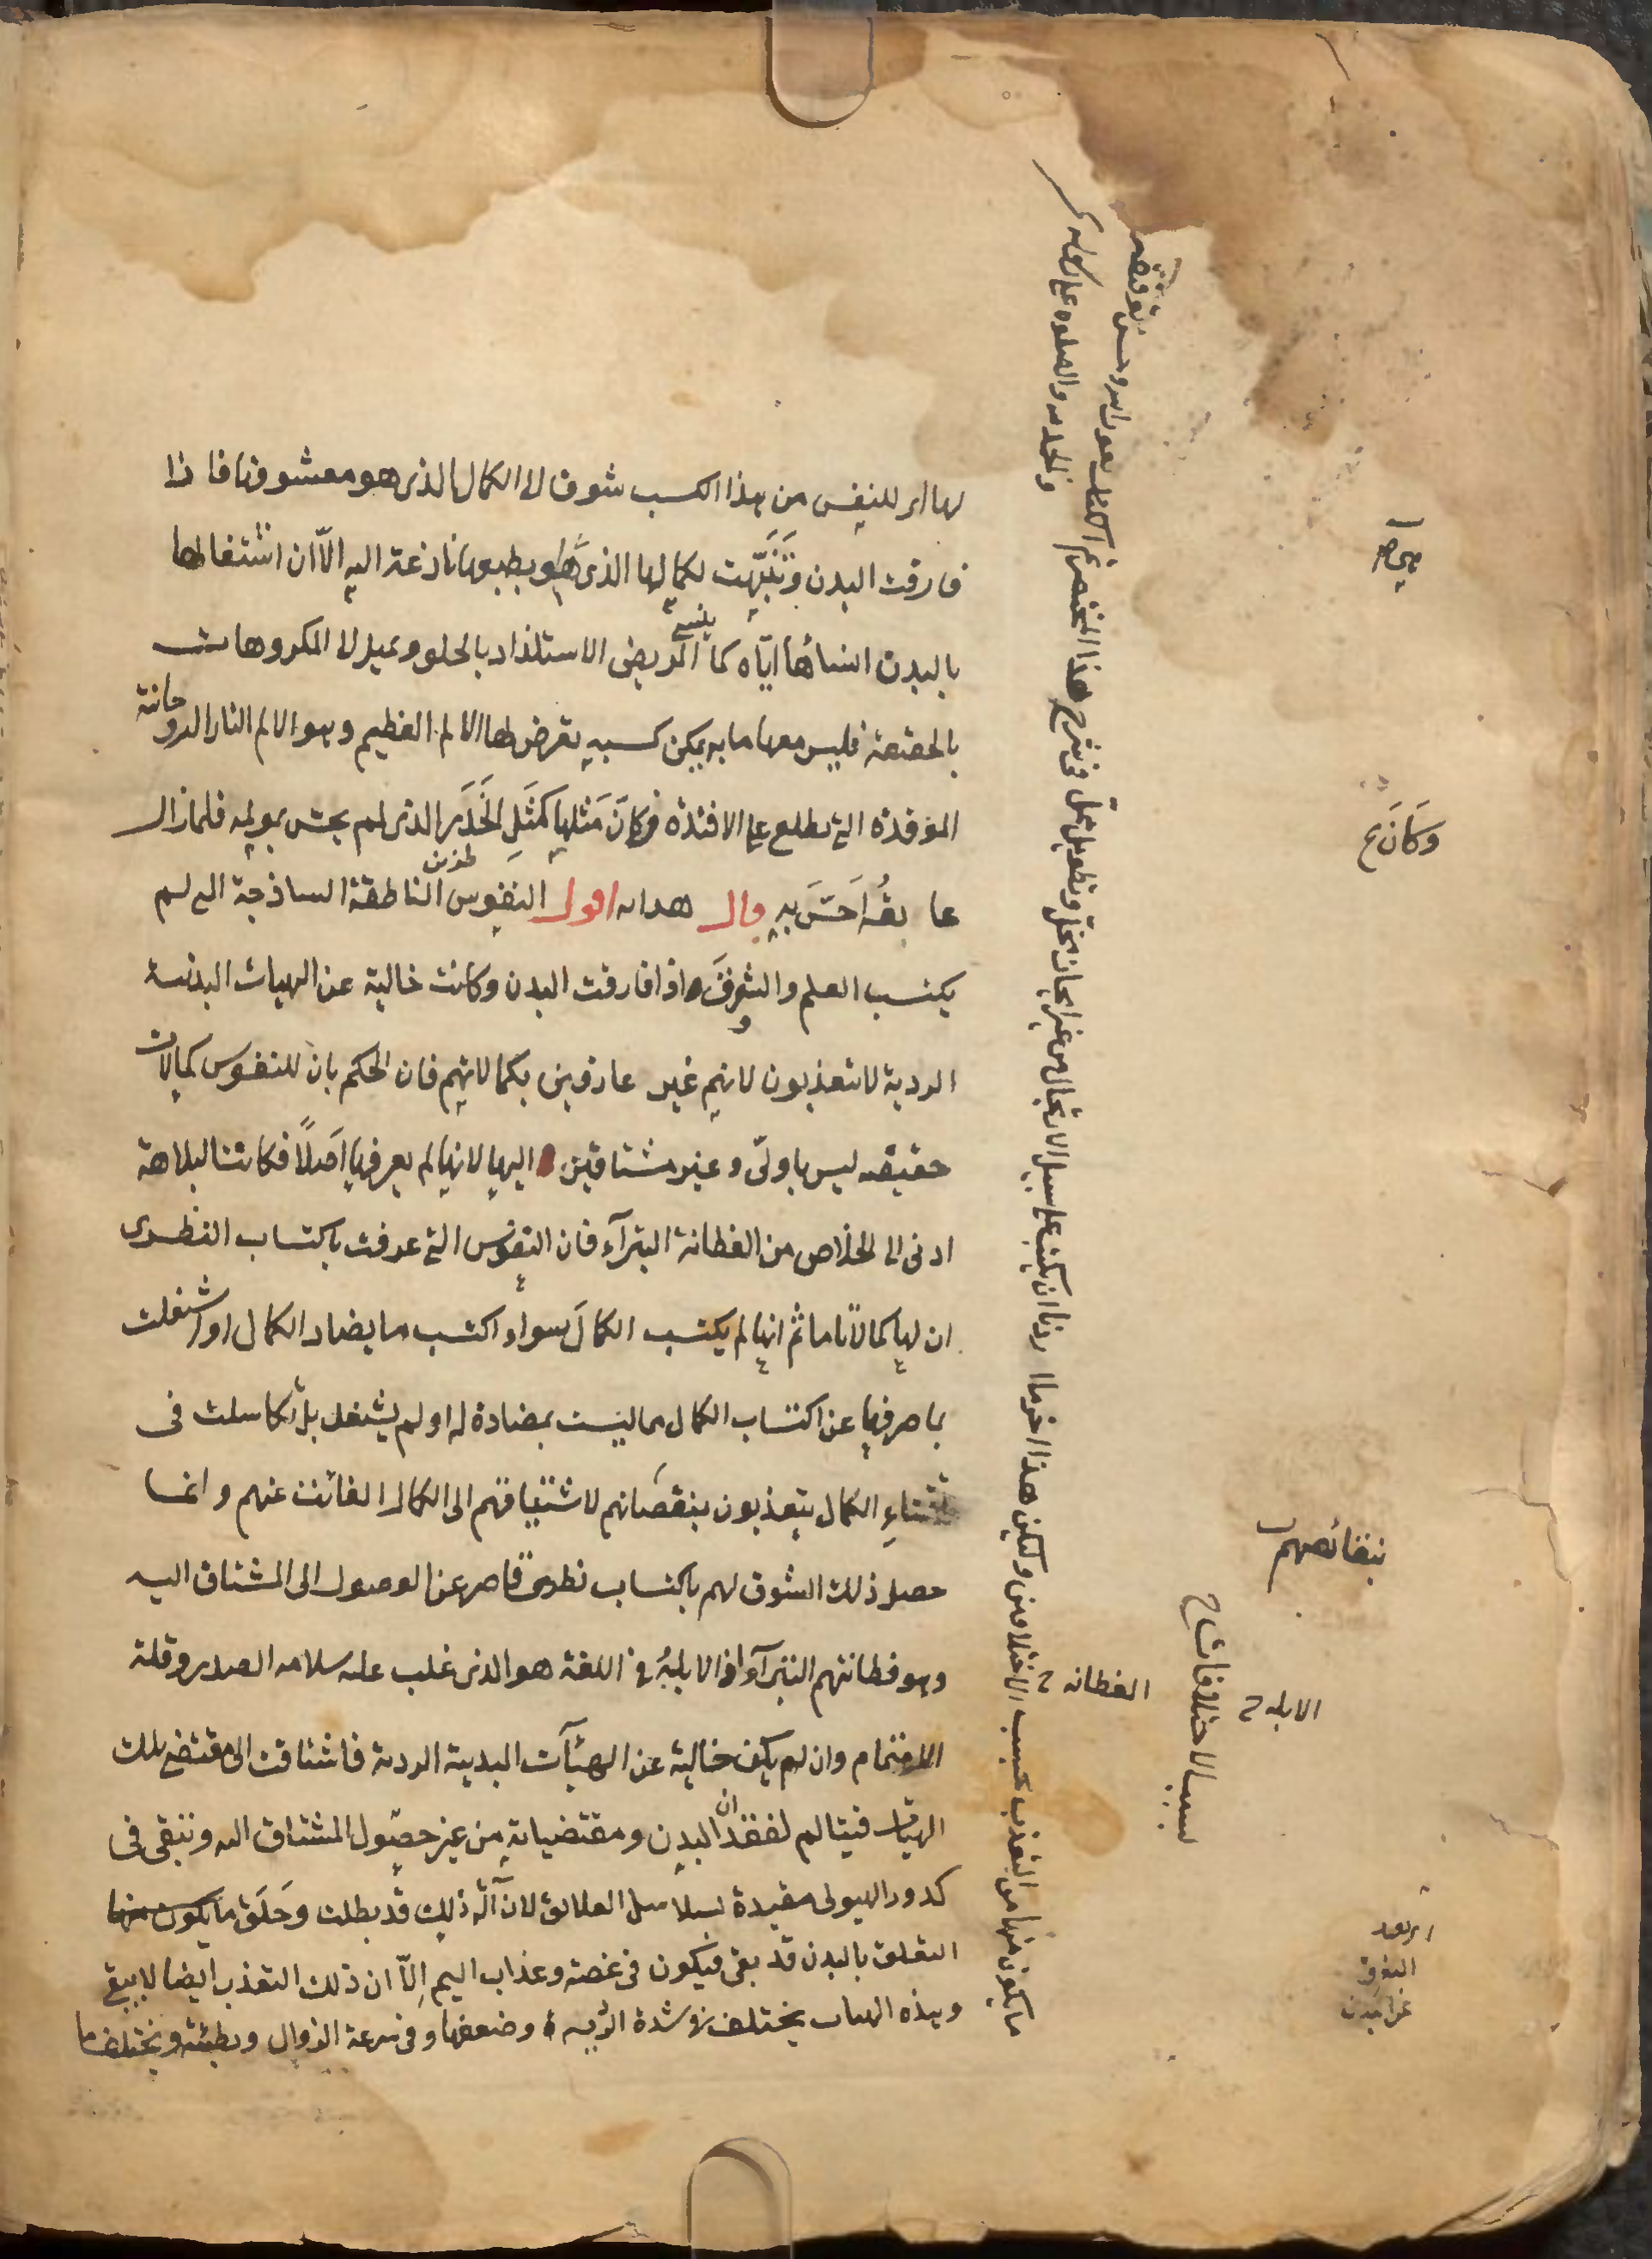 لها اى للنفس من هذا الكسب شوق الى الكمال الذى هو معشوقها فاذا
فارقت البدن وتنبهت لكمالها الذى هو بطبعها نازعة اليه الا ان اشتغالها
بالبدن انساها اياه كما ينسى المريض الاستلذاد بالحلو ويميل الى المكروهات
بالحقيقة فليس معها ما به يمكن كسبه يعرض لها الالم العظيم وهو الالم النار الروحانية
الموقدة التى تطلع على الافئدة وكان مثلها كمثل الخدر الذى لم يحس بمولمه فلما زال
عايقه احس به قال هدايه اقول النفوس الناطقة الساذجة التى لم
يكتسب العلم والشوق اذا فارقت البدن وكانت خالية عن الهيات البدنية
الردية لا يتعذبون لانهم غير عارفين بكمالاتهم فان الحكم بان للنفوس كمالات
حقيقه ليس باولى وغير مشتاقين اليها لانها لم يعرفها اصلا فكانت البلاهة
ادنى الى الخلاص من الفطانة البتراء فان النفوس التى عرفت باكتساب النظرى
ان لها كمالا ما ثم انها لم يكتسب الكمال سواء اكتسب ما يضاد الكمال او اشتغلت
بما صرفها عن اكتساب الكمال مما ليست بمضادة له او لم يشتغل بل تكاسلت فى
اقتناء الكمال يتعذبون بنقصانهم لاشتياقهم الى الكمال الفائت عنهم وانما
حصل ذلك الشوق لهم باكتساب نظرى قاصر عن الوصول الى المشتاق اليه
وهو فطانتهم البتراء اذ الابله فى اللغة هو الذى غلب عليه سلامه الصدر وقلة
الاهتمام وان لم يكن خالية عن الهيئآت البدنية الردية فاشتاقت الى مقتضى تلك
الهيات فيتالم لفقدان البدن ومقتضياته من غير حصول المشتاق اليه وتبقى فى
كدور الهيولى مقيدة بسلاسل العلائق لان آلة ذلك قد بطلت وخلق ما يكون منها
التعلق بالبدن قد بقى فيكون فى غصة وعذاب اليم الا ان ذلك التعذب ايضا لا يبقى
وهذه الهيات يختلف فى شدة وضعفها وفى سرعة الزوال وبطئه ويختلف ما
ما يكون منها من التعذب بحسب الاختلافين وليكن هذا اخر ما اردنا ان يكتب على سبيل الارتجال من غير ايجاز مخل وتطويل ممل فى شرح هذا المختصر تم الكتاب بعون الله وحسن توفيقه
والحمد لله والصلوة على
وكان ع
بنقائصهم
الفطانه ح
الابله ح
بسبب الاختلافات ح
التعلق
عن البدن